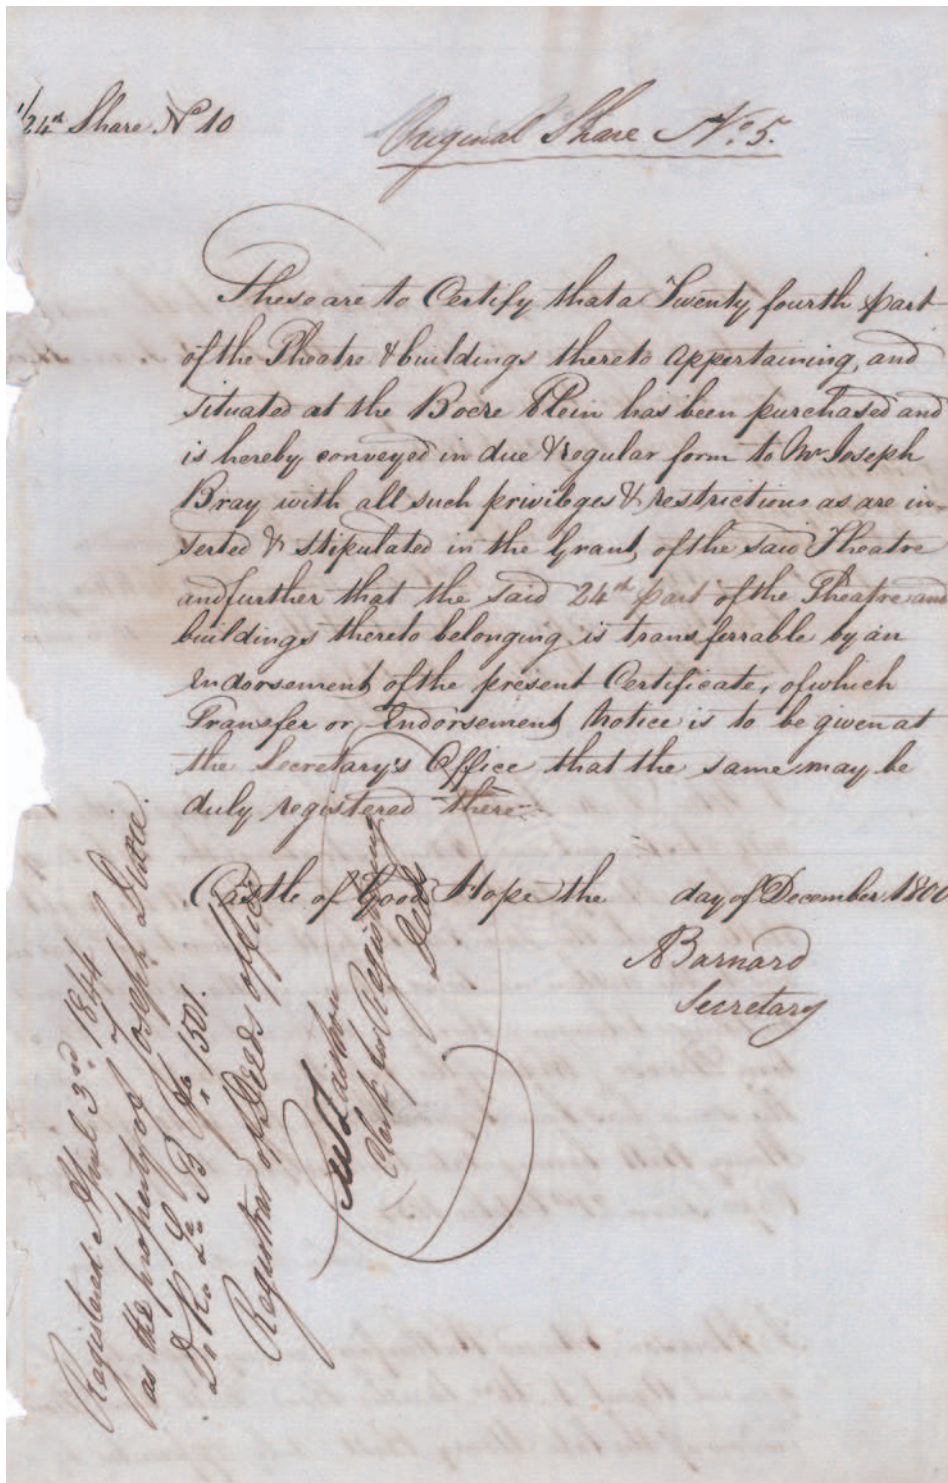 1/24th Share No 10
Original Share No. 5.
These are to Certify that a Twenty fourth part
of the Theatre & buildings thereto appertaining, and
situated at the Boere Plein has been purchased and
is hereby conveyed in due & regular form to Mr Joseph
Bray with all such privileges & restrictions as are in-
serted & stipulated in the Grant of the said Theatre
and further that the said 24th part of the Theatre and
buildings thereto belonging is transferrable by an
Endorsement of the present Certificate, of which
Transfer or Endorsement Notice is to be given at
the Secretary's Office that the same may be
duly registered there.
Castle of Good Hope the day of December 1800
ABarnard
Secretary
Registered April 3rd 1844
as the property of Joseph
1501.
Registrar of Deeds office
Clerk for Registering
Deeds